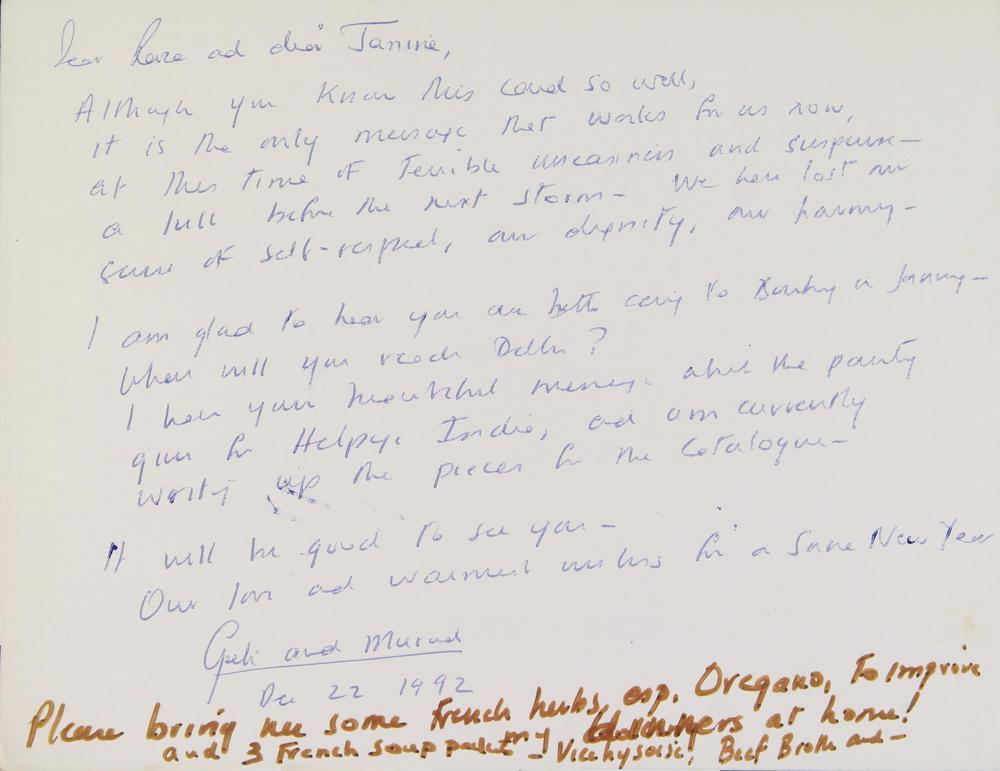 Dear Raza and dear Janine,
Although you know this card so well,
it is the only message that works for us now,
at this time of terrible uneasiness and suspense—
a lull before the next storm— We have lost our
sense of self-respect, our dignity, our harmony—
I am glad to hear you are both coming to Bombay in January—
When will you reach Delhi?
I have your beautiful message about the painting
given for Helpage India, and am currently
writing up the pieces for the Catalogue—
It will be good to see you—
Our love and warmest wishes for a Sane New Year
Geeti and
Dec 22 1992
Please bring me some French herbs, esp. Oregano, To Improve
my dinners at home!
and 3 French Soup packets— Vichysoise, Beef Broth and—